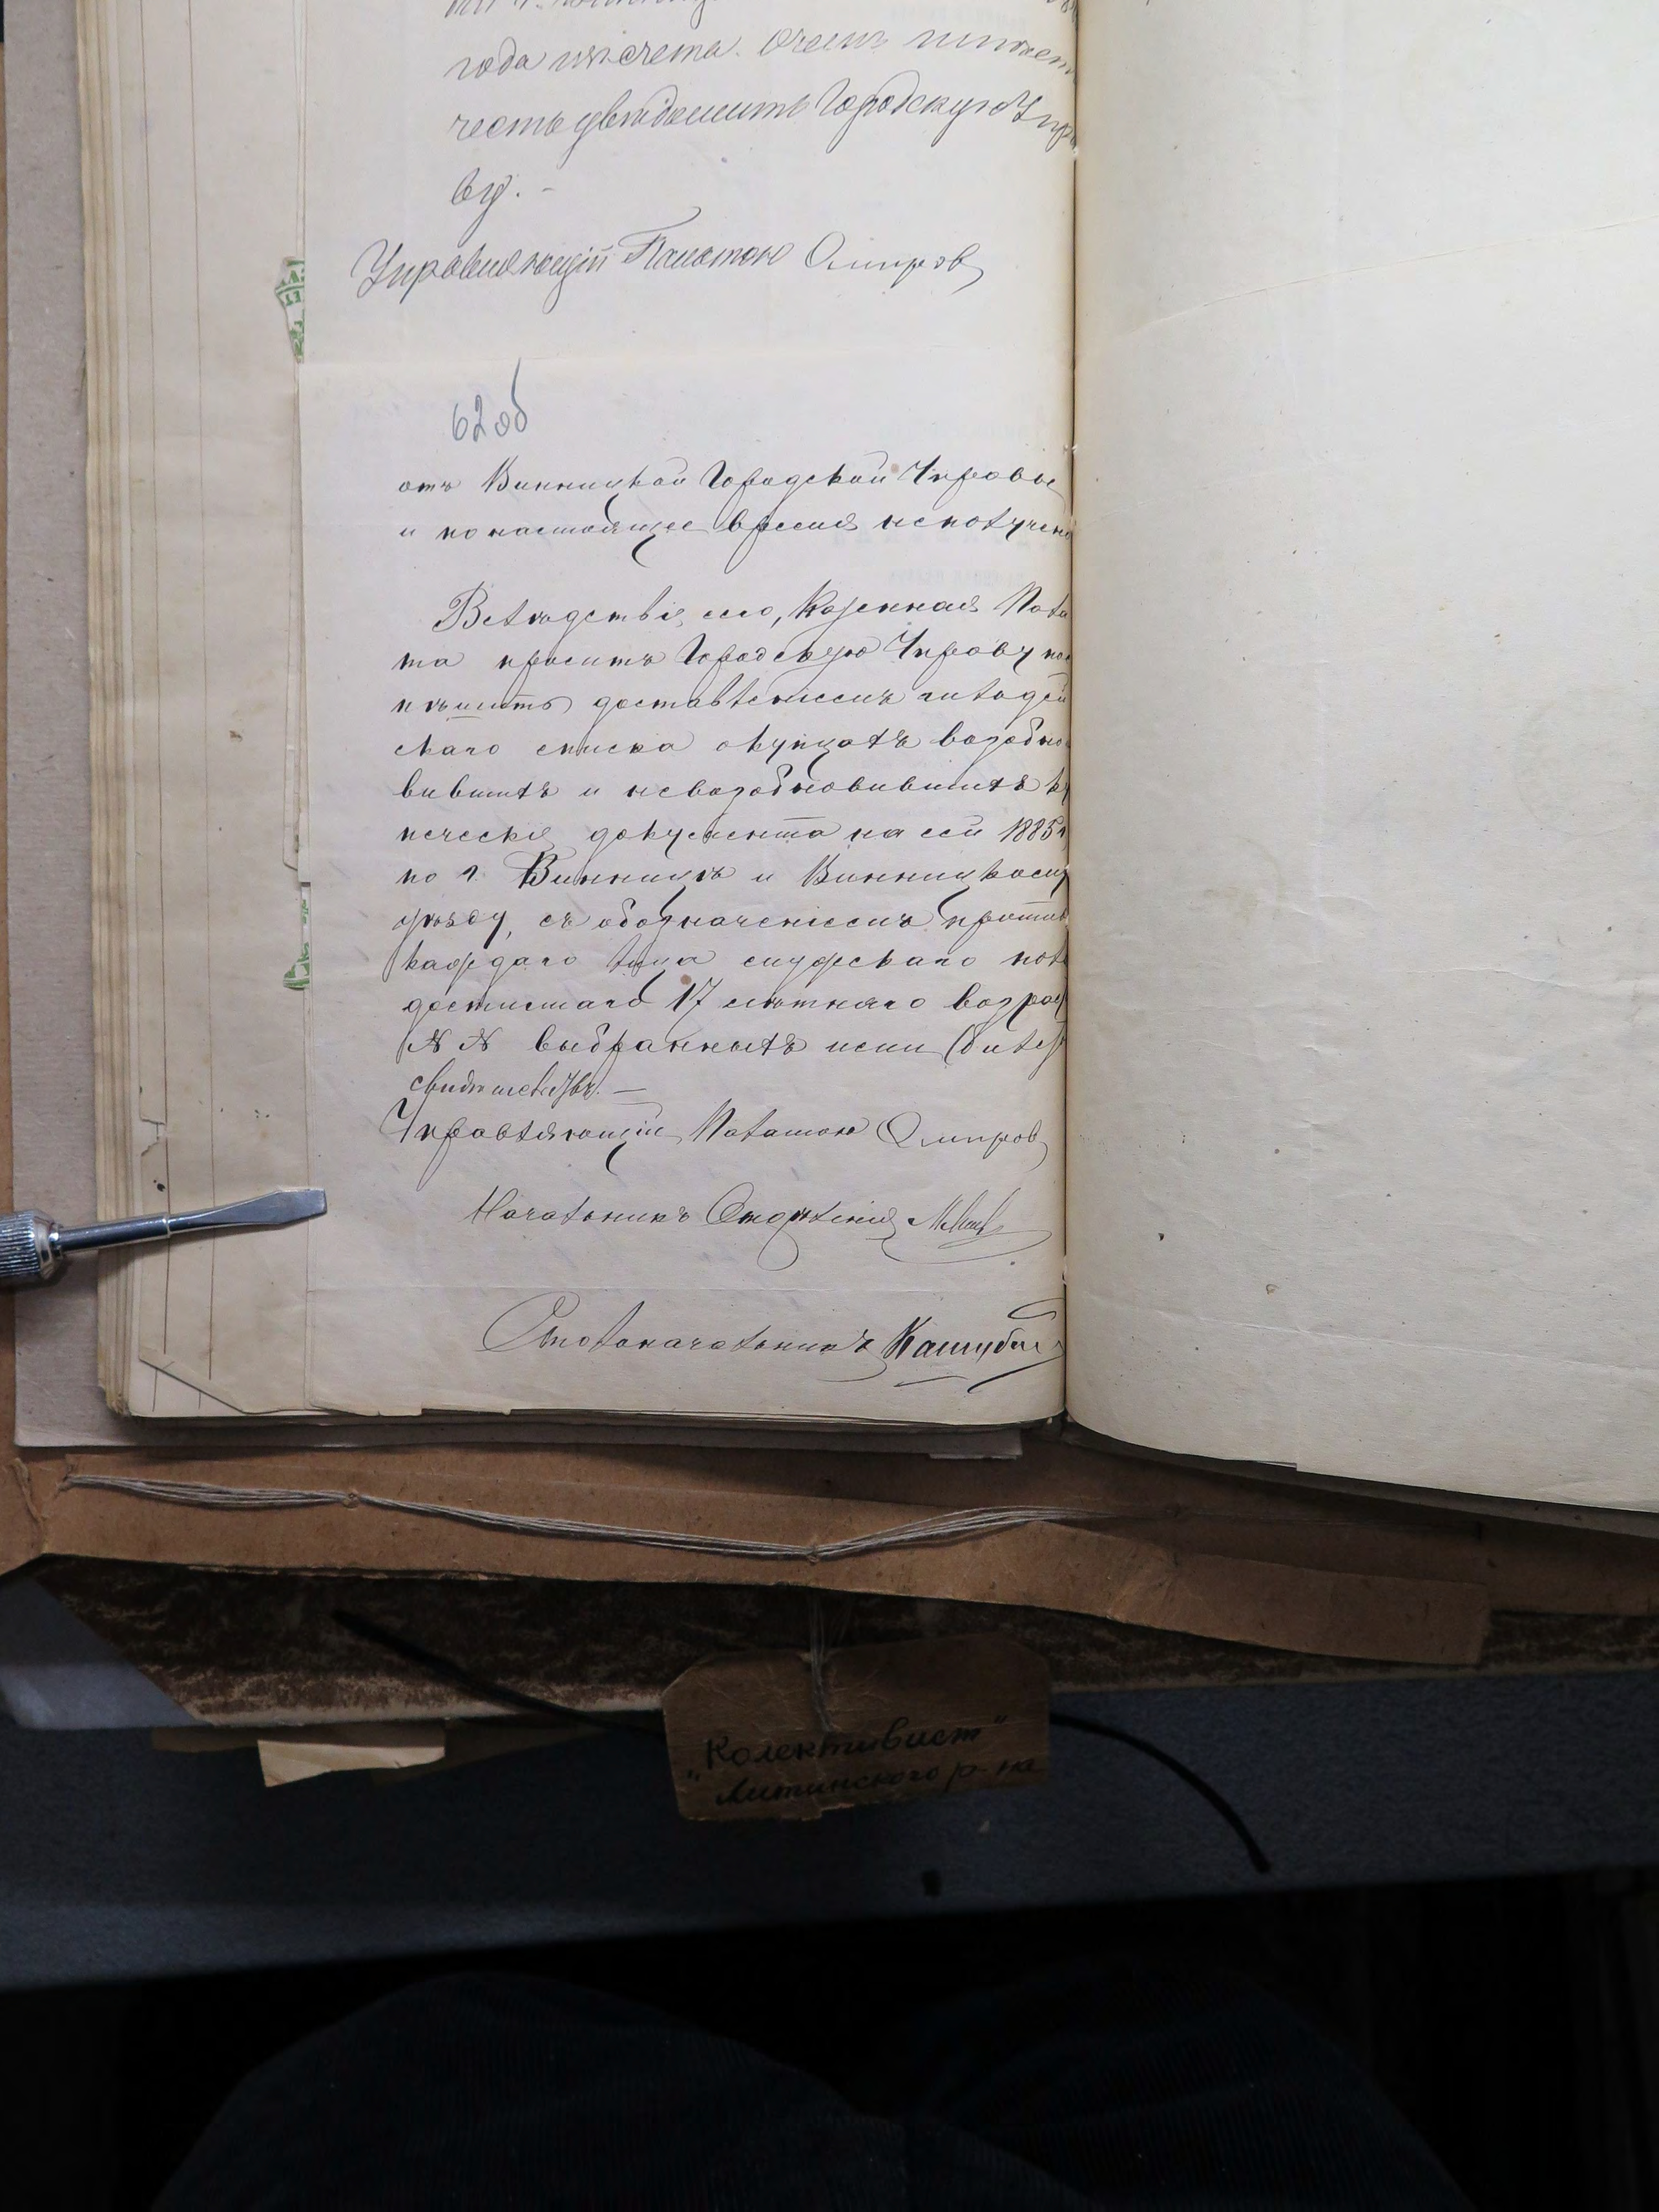 года изъ счета. О чемъ имѣет
честь увѣдомить Городскую Упра
ву. -
Управляющій Палатою
62 об
отъ Винницкой Городской Управы
и по настоящее время не получено
Вслѣдствіе сего, Казенная Пала
та проситъ Городскую Управу пос
пѣшить доставленіемъ
скаго списка о купцахъ возобно
вившихъ и невозобновившихъ ку
печескіе документа на сей 1885 г
по г. Винницѣ и Винницкому
уѣзду, съ обозначеніемъ против
каждаго лица мужскаго пола
достигшаго 17 лѣтняго возрас
N N выбранныхъ ими билет
свидѣтельствъ. —
Управляющій Палатою
Начальникъ Отдѣленія
Столоначальникъ
"Колективист"
Литинского р-на